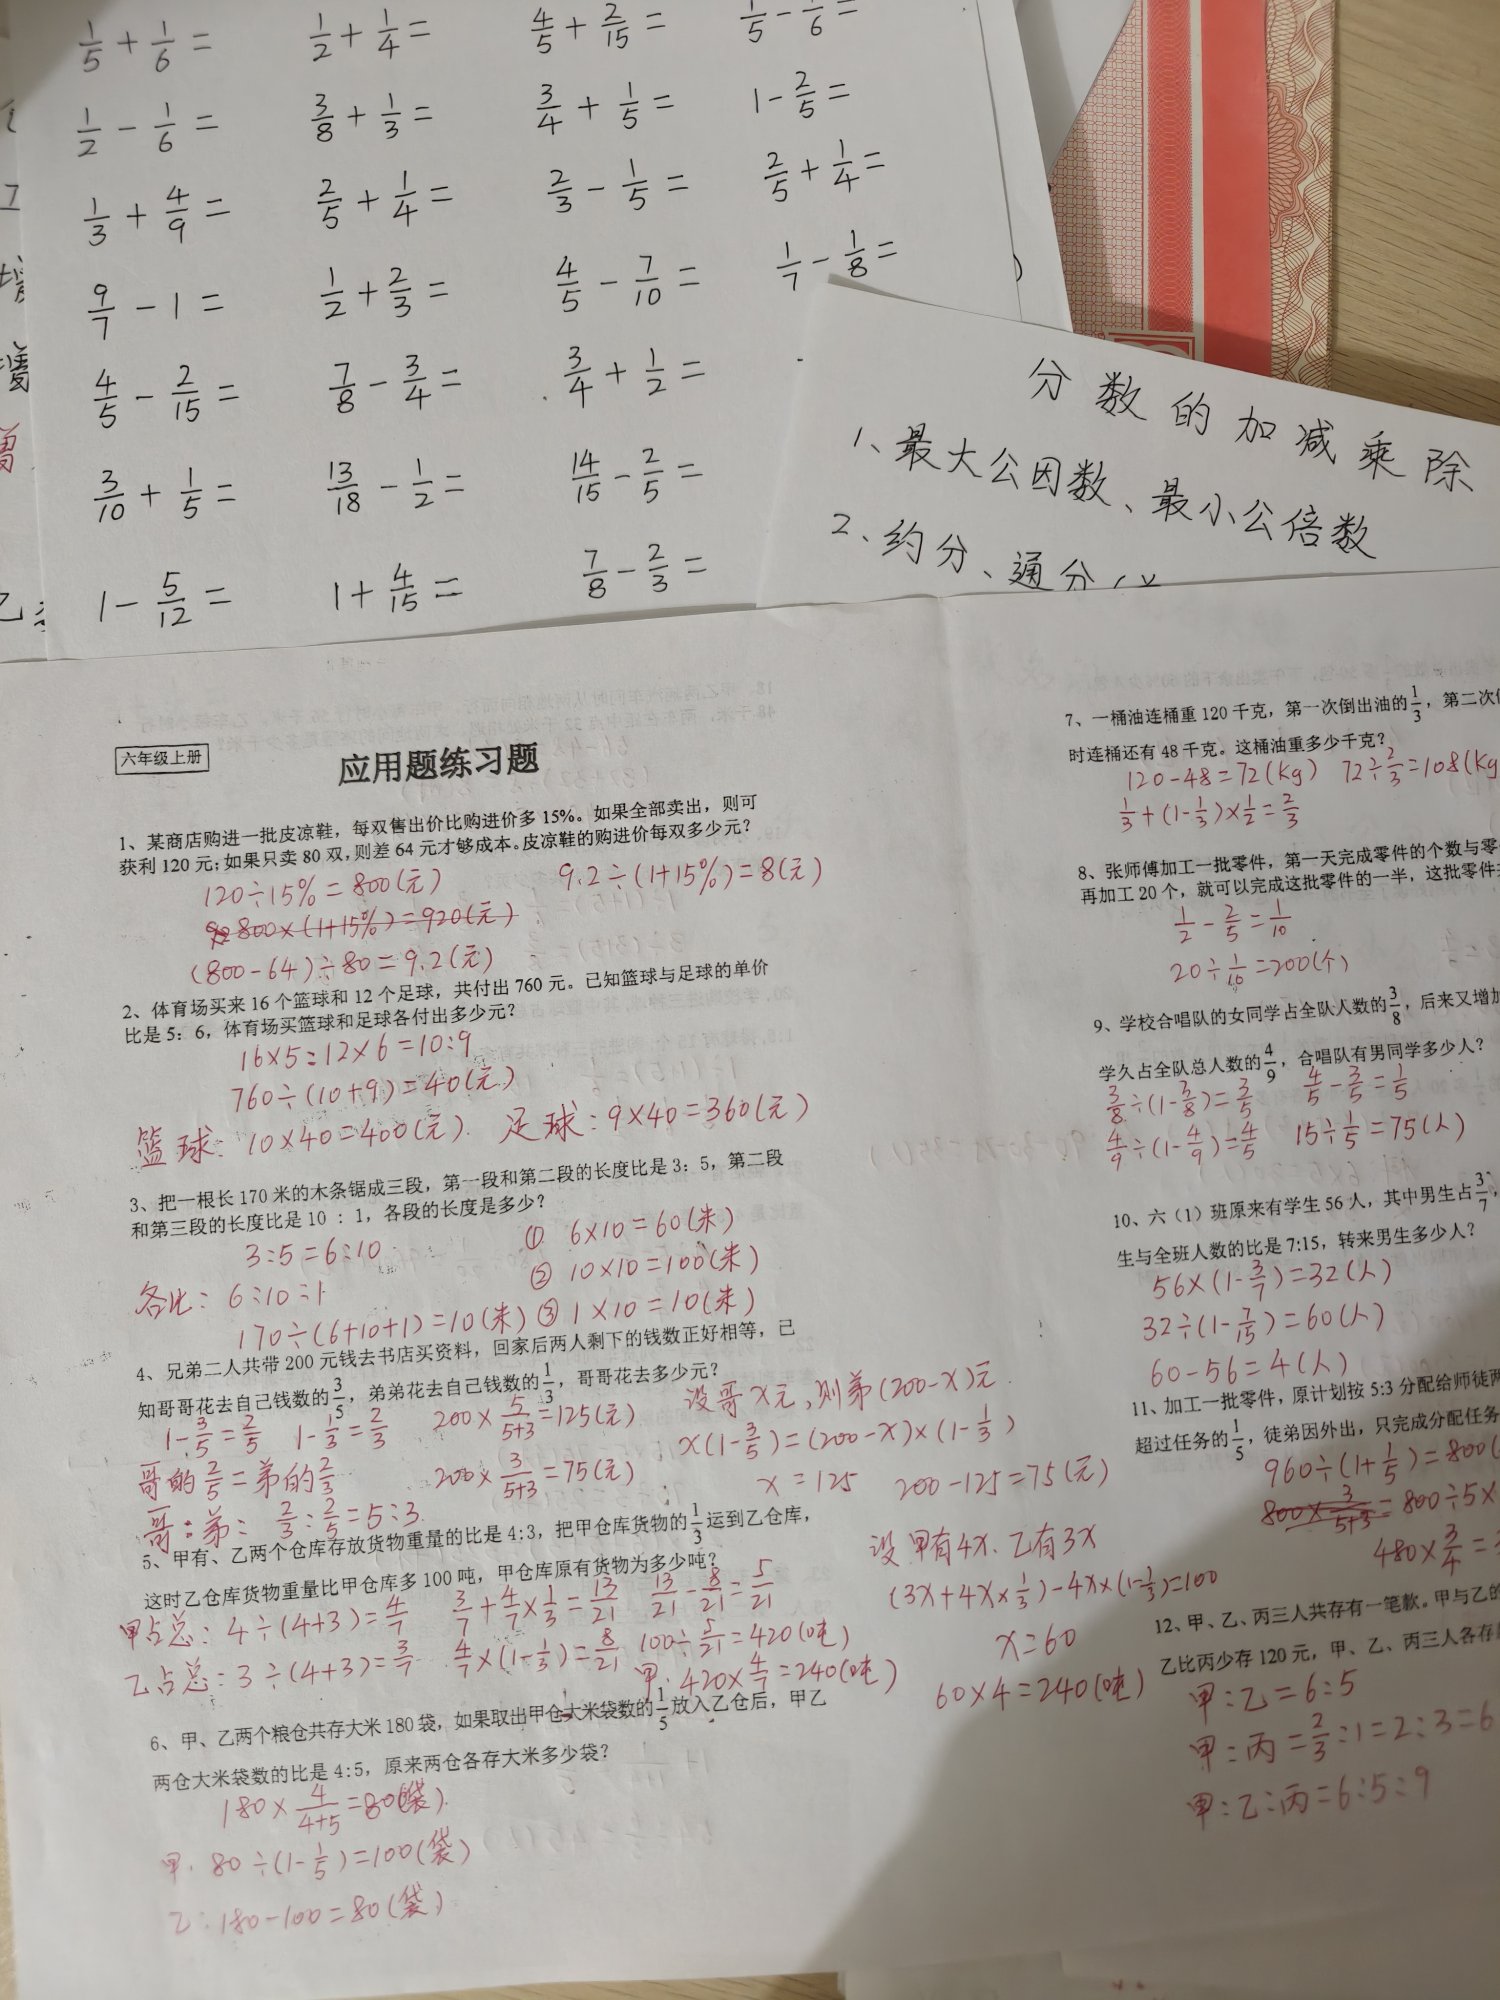 1/5 + 1/6 =   1/2 + 1/4 =   4/5 + 2/15 =   1/5 - 1/6 =
1/2 - 1/6 =   3/8 + 1/3 =   3/4 + 1/5 =   1 - 2/5 =
1/3 + 4/9 =   2/5 + 1/4 =   2/3 - 1/5 =   2/5 + 1/4 =
9/7 - 1 =   1/2 + 2/3 =   4/5 - 7/10 =   1/7 - 1/8 =
4/5 - 2/15 =   7/8 - 3/4 =   3/4 + 1/2 =
3/10 + 1/5 =   13/18 - 1/2 =   14/15 - 2/5 =
1 - 5/12 =   1 + 4/15 =   7/8 - 2/3 =
分数的加减乘除
1、最大公因数、最小公倍数
2、约分、通分
六年级上册
应用题练习题
1、某商店购进一批皮凉鞋，每双售出价比购进价多15%。如果全部卖出，则可
获利120元；如果只卖80双，则差64元才够成本。皮凉鞋的购进价每双多少元？
120÷15%=800(元)   9.2÷(1+15%)=8(元)
800×(1+15%)=920(元)
(800-64)÷80=9.2(元)
2、体育场买来16个篮球和12个足球，共付出760元。已知篮球与足球的单价
比是5：6，体育场买篮球和足球各付出多少元？
16×5:12×6=10:9
760÷(10+9)=40(元)
篮球：10×40=400(元)   足球：9×40=360(元)
3、把一根长170米的木条锯成三段，第一段和第二段的长度比是3：5，第二段
和第三段的长度比是10：1，各段的长度是多少？
3:5=6:10   ① 6×10=60(米)
② 10×10=100(米)
各比：6:10:1
170÷(6+10+1)=10(米)   ③ 1×10=10(米)
4、兄弟二人共带200元钱去书店买资料，回家后两人剩下的钱数正好相等，已
知哥哥花去自己钱数的3/5，弟弟花去自己钱数的1/3，哥哥花去多少元？
设哥x元，则弟(200-x)元
1-3/5=2/5   1-1/3=2/3   200×5/(5+3)=125(元)   x(1-3/5)=(200-x)×(1-1/3)
哥的2/5=弟的2/3   200×3/(5+3)=75(元)   x=125   200-125=75(元)
哥：弟：2/3:2/5=5:3
5、甲有、乙两个仓库存放货物重量的比是4:3，把甲仓库货物的1/3运到乙仓库，
这时乙仓库货物重量比甲仓库多100吨，甲仓库原有货物为多少吨？
设甲有4x、乙有3x
(3x+4x×1/3)-4x×(1-1/3)=100
x=60
60×4=240(吨)
甲占总：4÷(4+3)=4/7   3/7+4/7×1/3=13/21   13/21-8/21=5/21
乙占总：3÷(4+3)=3/7   4/7×(1-1/3)=8/21   100÷5/21=420(吨)
甲：420×4/7=240(吨)
6、甲、乙两个粮仓共存大米180袋，如果取出甲仓大米袋数的1/5放入乙仓后，甲乙
两仓大米袋数的比是4:5，原来两仓各存大米多少袋？
180×4/(4+5)=80(袋)
甲：80÷(1-1/5)=100(袋)
乙：180-100=80(袋)
7、一桶油连桶重120千克，第一次倒出油的1/3，第二次
时连桶还有48千克。这桶油重多少千克？
120-48=72(Kg)   72÷2/3=108(Kg
1/3+(1-1/3)×1/2=2/3
8、张师傅加工一批零件，第一天完成零件的个数与零
再加工20个，就可以完成这批零件的一半，这批零件
1/2-2/5=1/10
20÷1/10=200(个)
9、学校合唱队的女同学占全队人数的3/8，后来又增加
学久占全队总人数的4/9，合唱队有男同学多少人？
3/8÷(1-3/8)=3/5   4/5-3/5=1/5
4/9÷(1-4/9)=4/5   15÷1/5=75(人)
10、六（1）班原来有学生56人，其中男生占3/7，
生与全班人数的比是7:15，转来男生多少人？
56×(1-3/7)=32(人)
32÷(1-7/15)=60(人)
60-56=4(人)
11、加工一批零件，原计划按5:3分配给师徒两
超过任务的1/5，徒弟因外出，只完成分配任务
960÷(1+1/5)=800(
800×3/(5+3)=800÷5×
480×3/4=
12、甲、乙、丙三人共存有一笔款。甲与乙的
乙比丙少存120元，甲、乙、丙三人各存
甲：乙=6:5
甲：丙=2/3:1=2:3=6
甲：乙：丙=6:5:9